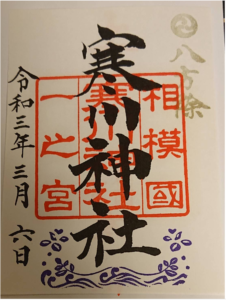 八方除
相模國
寒川神社
一之宮
寒川神社
令和三年三月六日